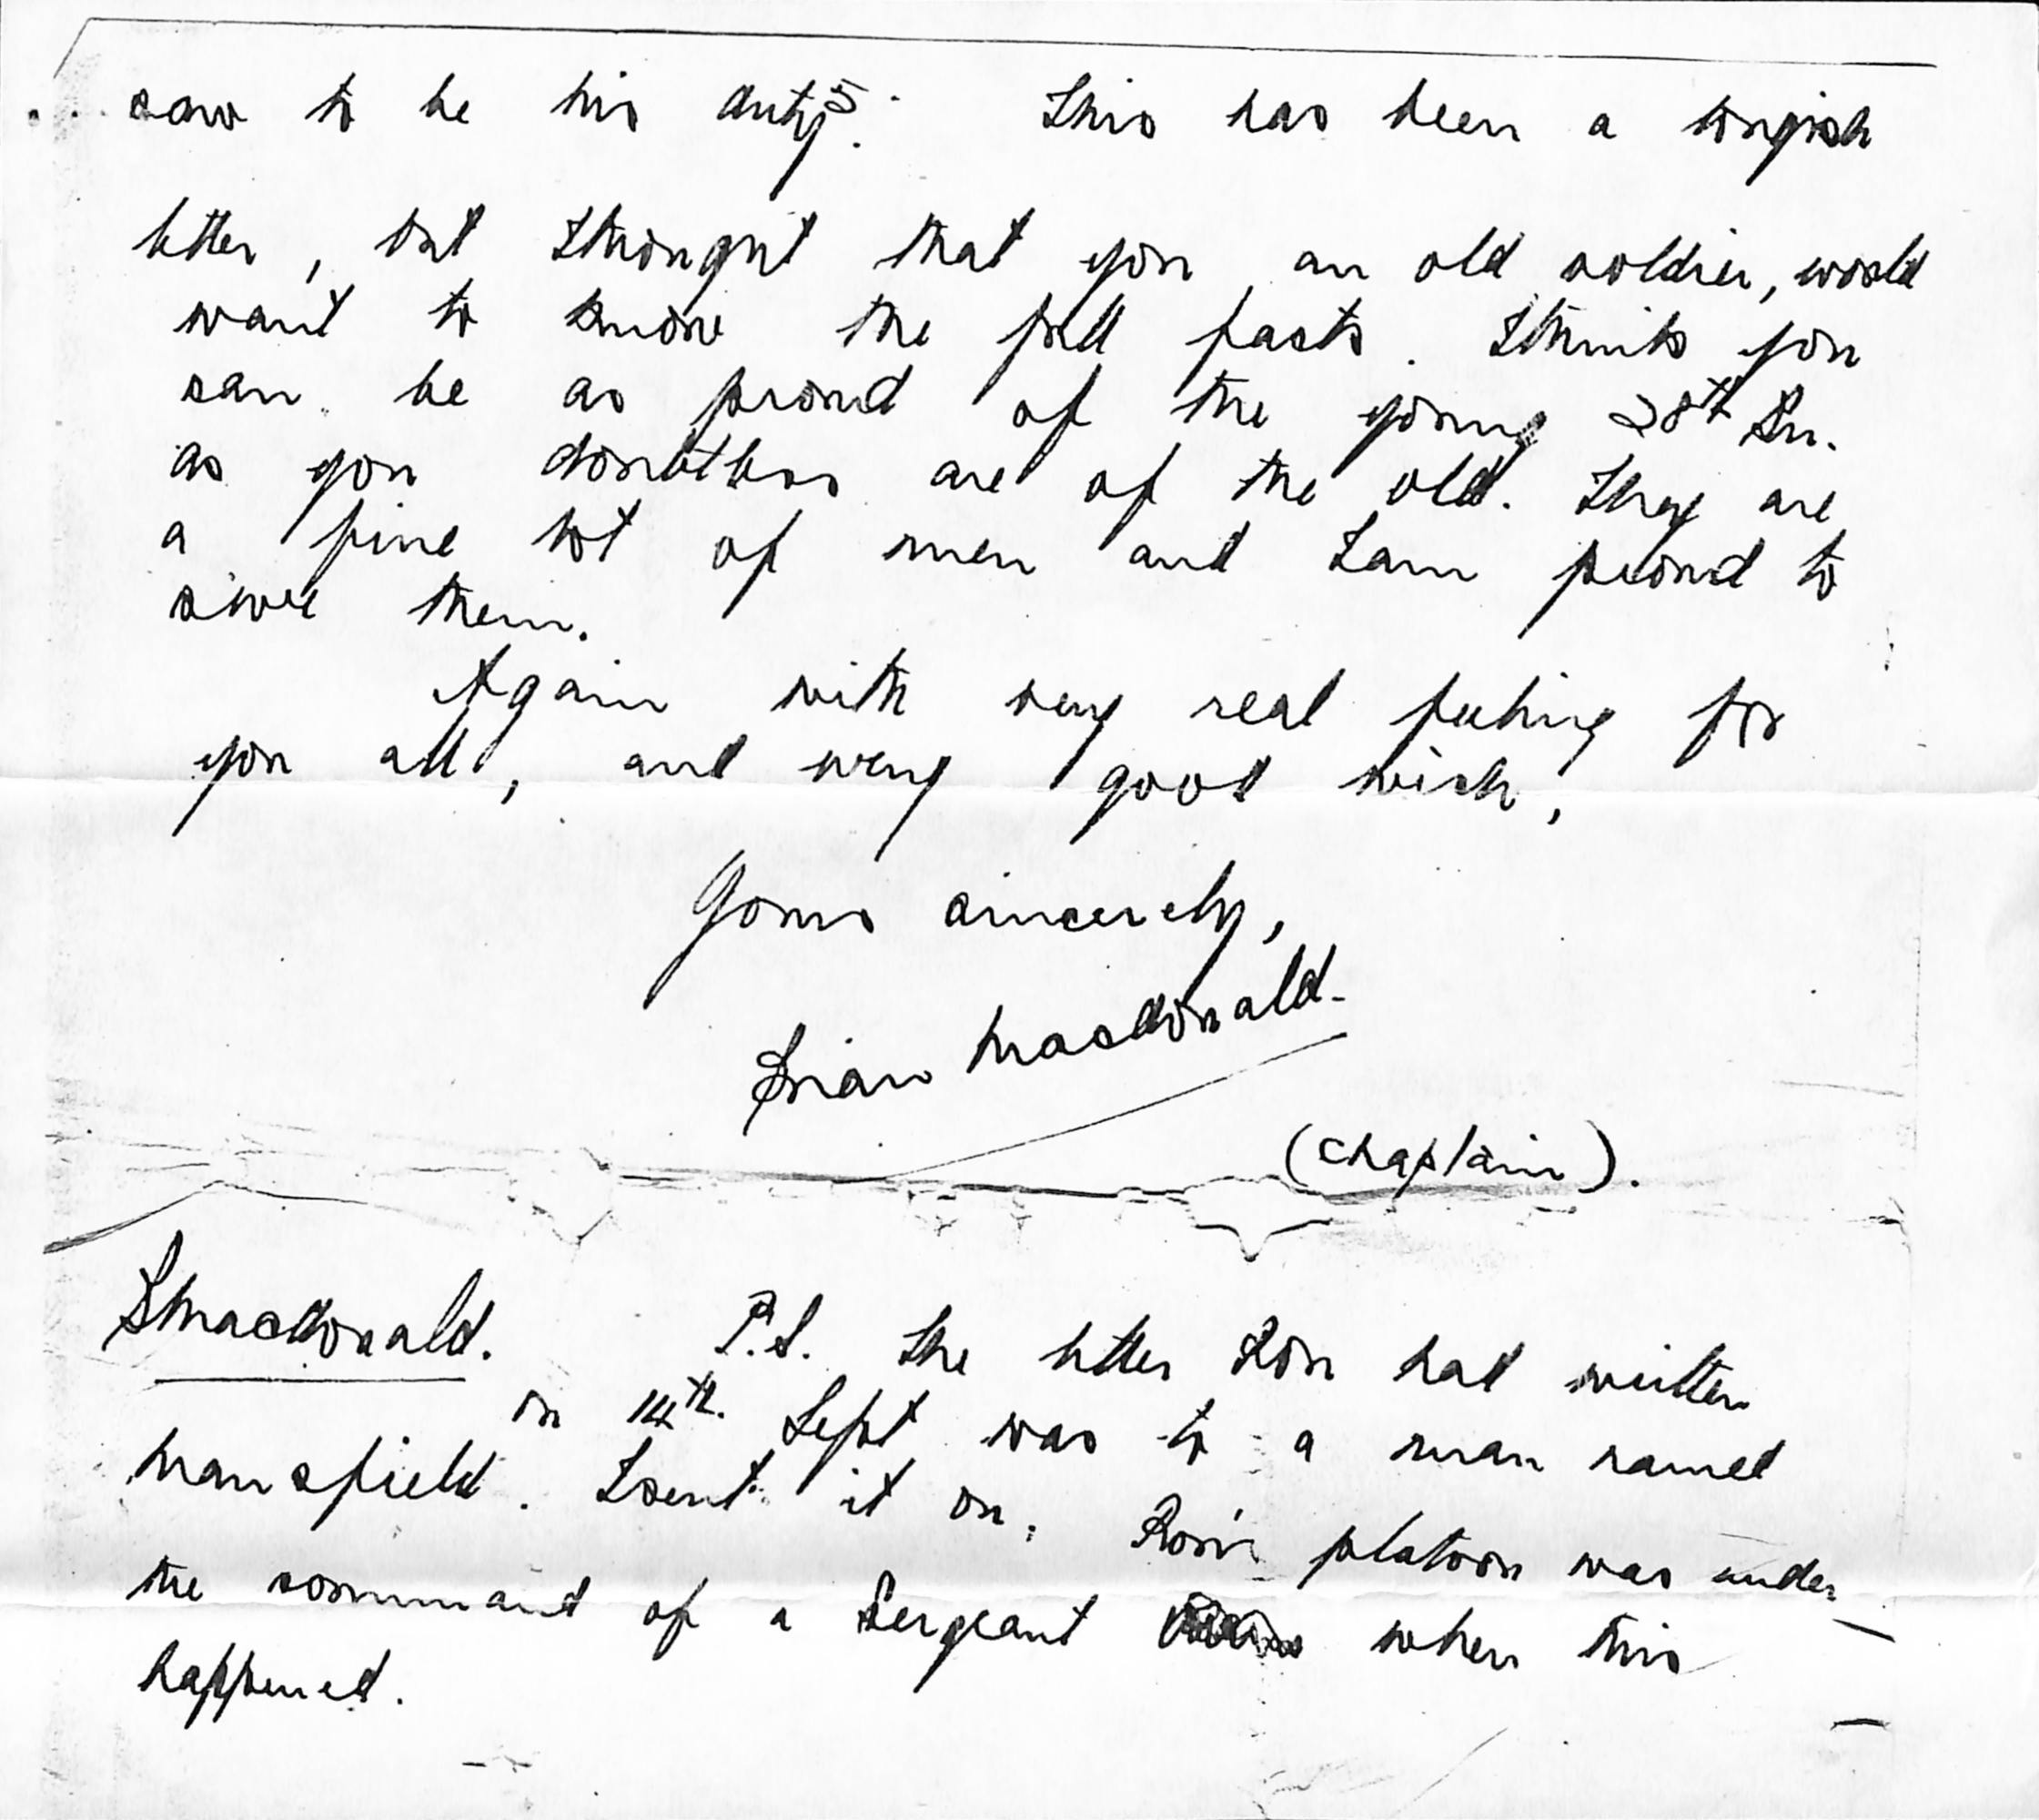 saw to be his duty. This has been a longish
letter, but I thought that you, an old soldier, would
want to know the full facts. I think you
can be as proud of the young 28th Bn.
as you doubtless are of the old. They are
a fine lot of men and I am proud to
serve them.
Again with very real feeling for
you all, and every good wish,
Yours sincerely,
Brian Macdonald.
(Chaplain).
BMacdonald. P.S. The letter Ron had written
on 14th. Sept was to a man named
Mansfield. I sent it on. Ron's platoon was under
the command of a Sergeant when this
happened.